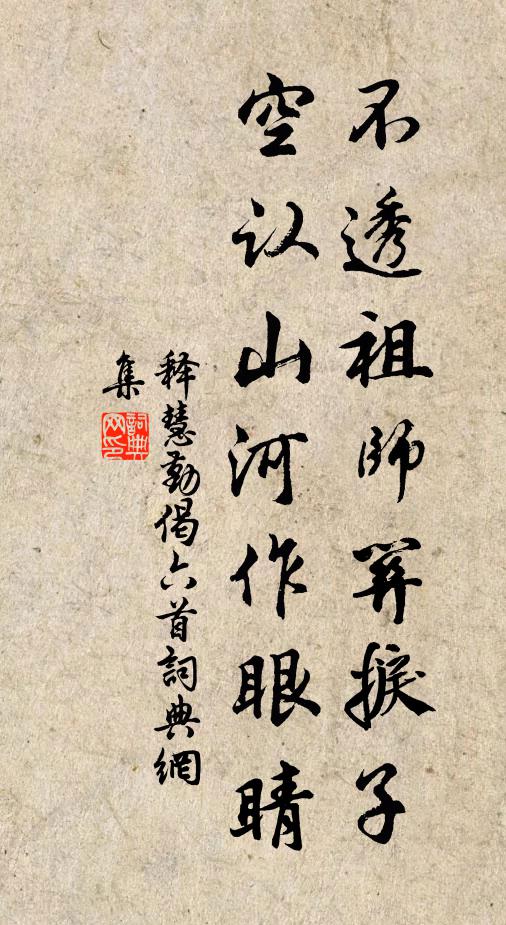 不透祖師關捩子
空认山河作眼睛
释慧勤偈六首詞典網
集
詞典
网印